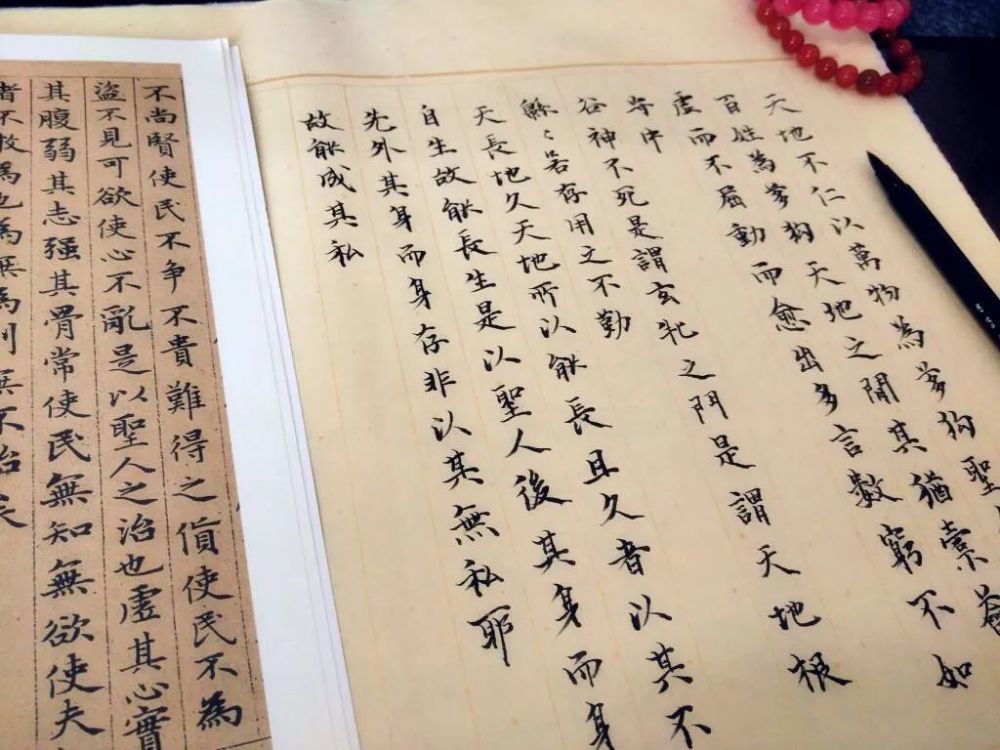 天地不仁以萬物為芻狗聖
百姓為芻狗天地之間其猶橐籥
虛而不屈動而愈出多言數窮不如
守中
谷神不死是謂玄牝之門是謂天地根
緜〻若存用之不勤
天長地久天地所以能長且久者以其不
自生故能長生是以聖人後其身而身
先外其身而身存非以其無私耶
故能成其私
不尚賢使民不争不貴難得之貨使民不為
盜不見可欲使心不亂是以聖人之治也虛其心實
其腹弱其志强其骨常使民無知無欲使夫
者不敢為也為無為則無不治矣